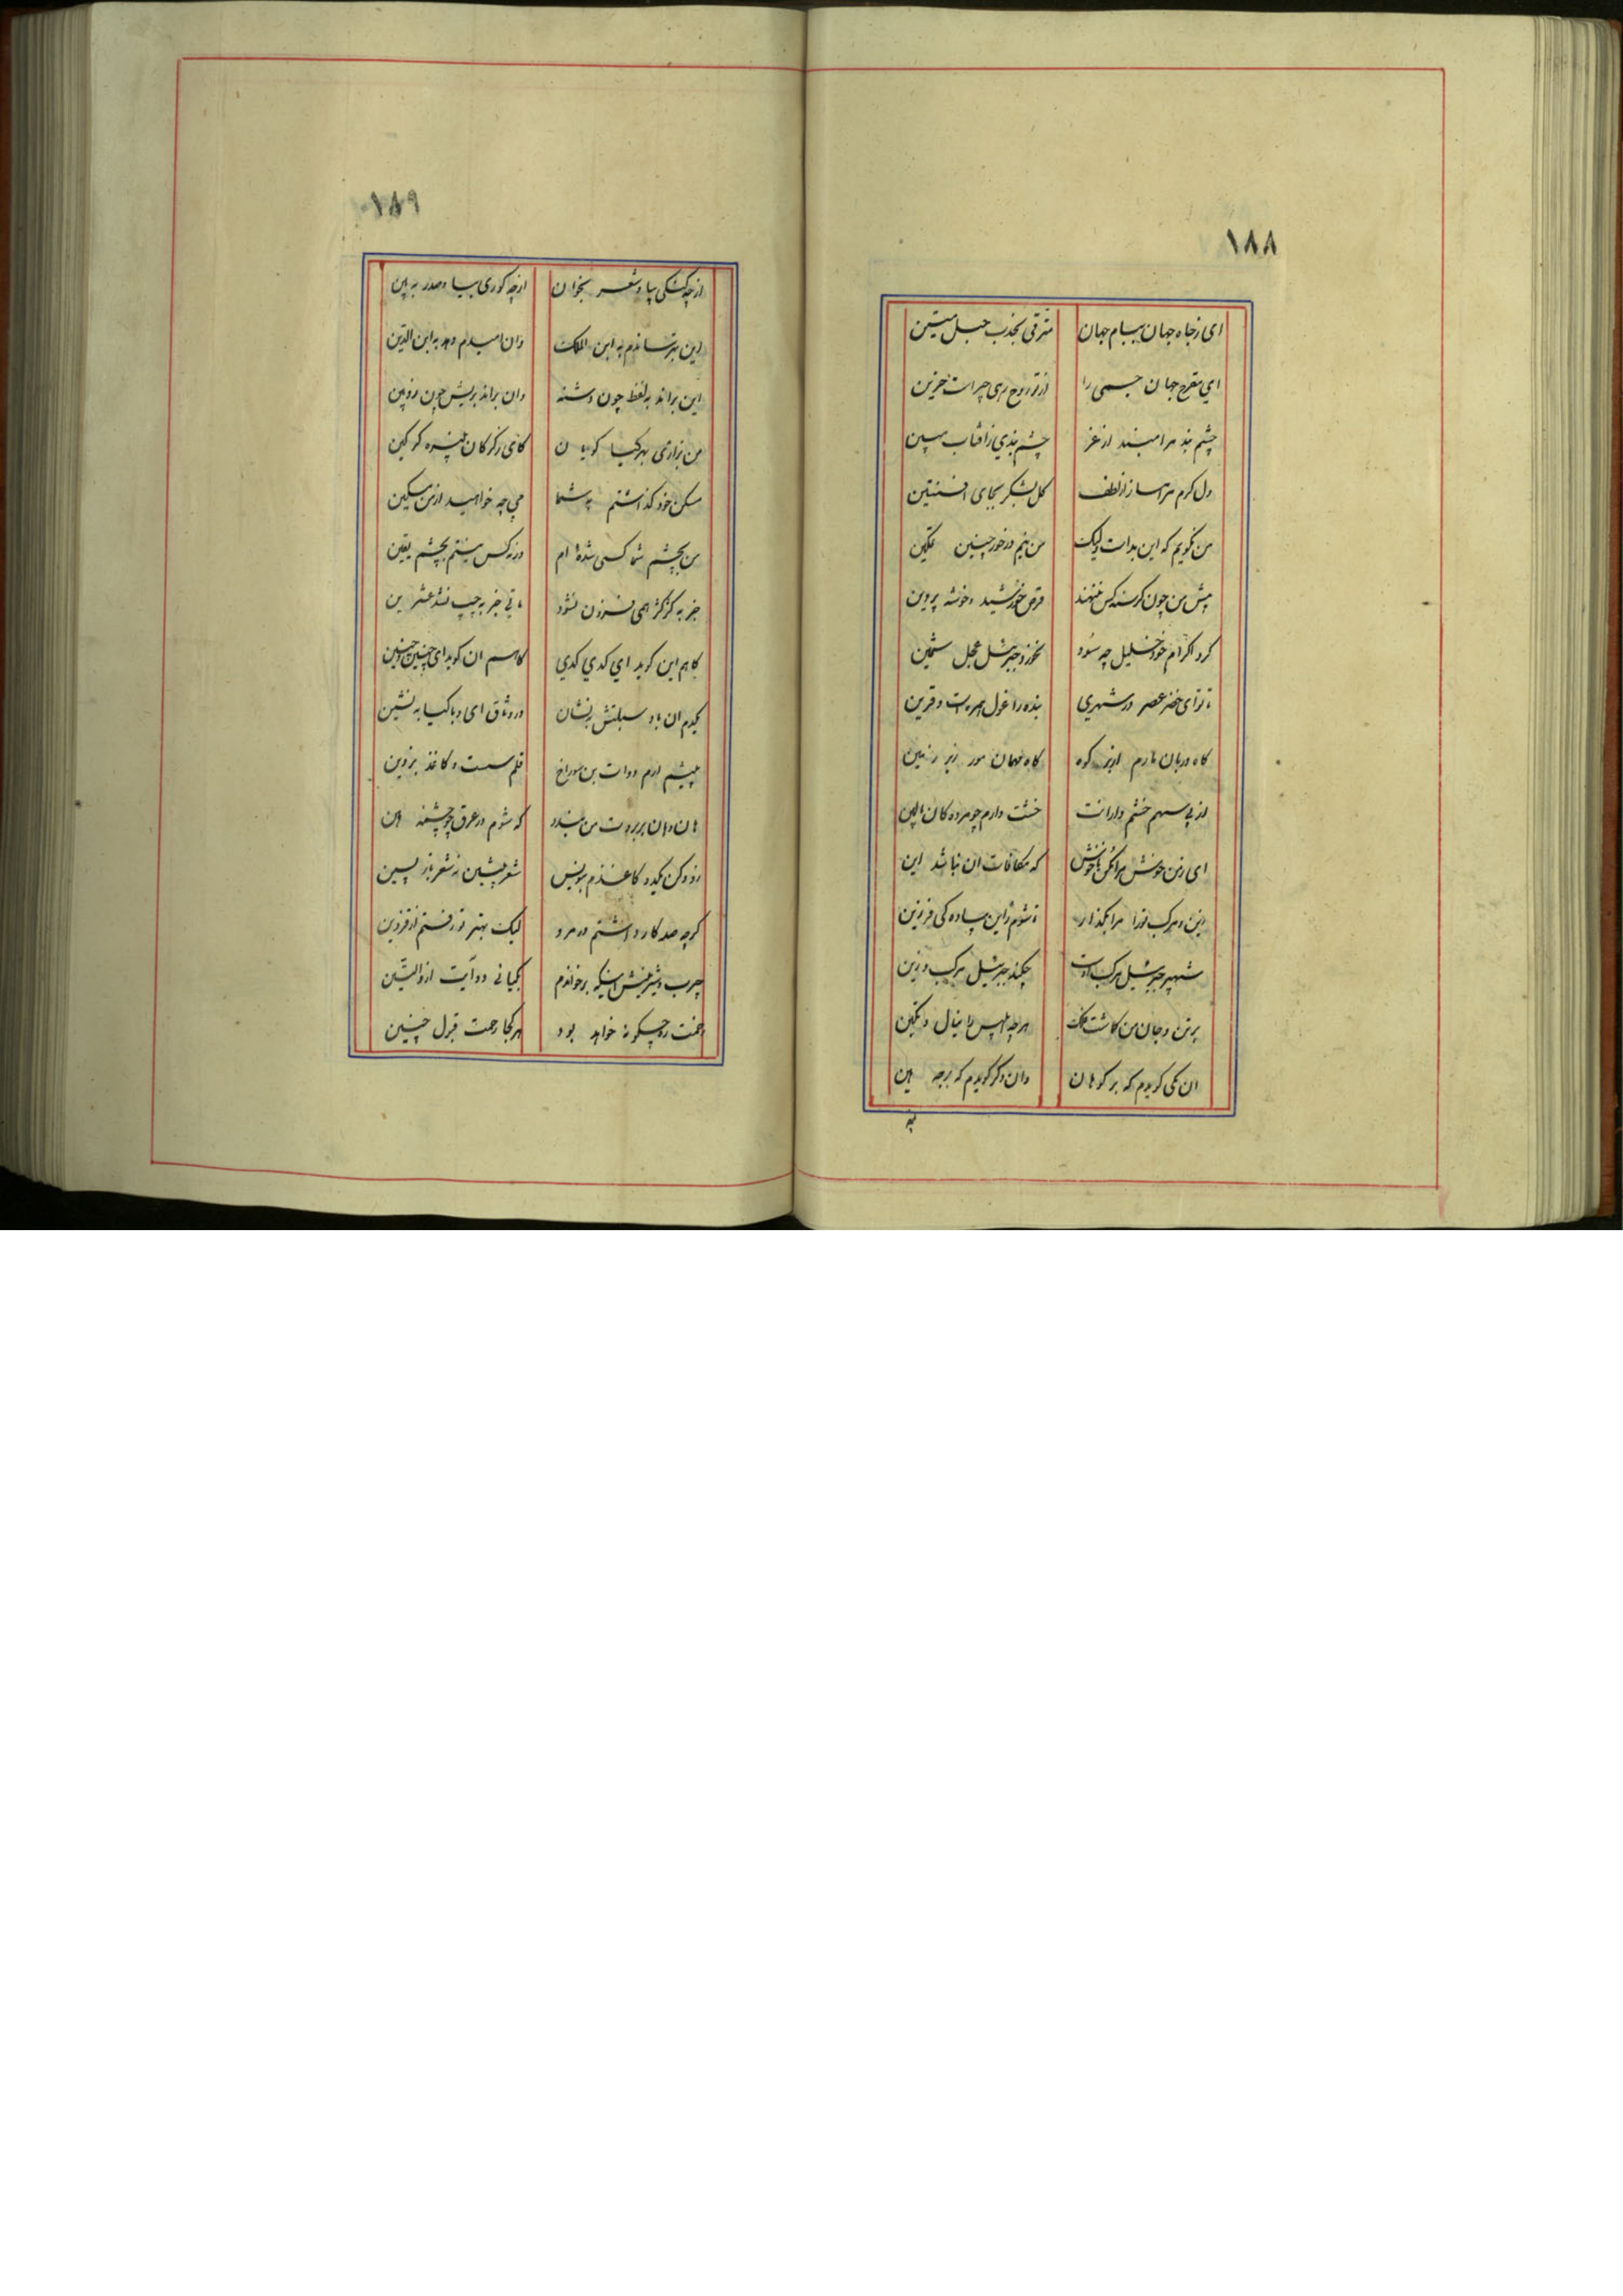 ۱۸۸
ای ز جاه جهان بسام جهان مترقی بجذب حبل متین
ای مفرح جهان جسمی را از تو روح رهی چراست حزین
چشم بد مرا مبند از غز چشم بندی ز آفتاب مبین
دل کرم مرا بساز از لطف کل بشکر بجای افسنتین
من نکویم که این بداست ولیک من نیم درخور چنین تمکین
پیش من چون کرسنه کس ننهند قرص خورشید و خوشه پروین
کرد اکرام خود خلیل چه سود نخورد جبرئیل عجل سمین
تا تو ای خضر عصر در شهری بنده را غول همره است و قرین
کاه دربان مارم از بر کوه کاه مهمان مور زیر زمین
از پی سهم خشم دارانت خشت دارم چو مرده کان بالین
ای ز من خوش مرا مکن ناخوش که مکافات آن نباشد این
زین و مرکب ترا مرا بگذار تا شوم زین پیاده کی فرزین
شهپر جبرئیل مرکب اوست چکند جبرئیل مرکب و زین
بر تن و جان من کماشت فلک هرچه ابلیس را ینال و تکین
آن یکی کویدم که بر کو هان وان دکر کویدم که برجه هین
۱۸۹
ازچه کنکی بیا و شعر بخوان ازچه کوری بیا و صدر ببین
این بترساندم به ابن الملک وان امیدم دهد به ابن الدین
این براند به لفظ چون دشنه وان براند بریش چون زوبین
من بزاری بهر کیا کویان کای بزرکان
مسکن خود کذاشتم به شما می چه خواهید از من مسکین
من بچشم شما کسی شده ام ورنه کس نیستم بچشم یقین
جز به کژ کژ همی فزون نشود تا تی جز به چپ نشد عشرین
کاهم این کوید ای کدی کدی کاهم آن کوید ای چنین و چنین
کیرم آن باد سبلتش بنشان در وثاق ای و با کیا بنشین
پیشم ارم دوات بن سوراخ قلم سست و کاغذ بزوین
هان و هان بر بروت من بندد که شوم در عرق چو چشمه هین
زود کن کیرد کاغذم بنویس شعر پیشین نه شعر باز پسین
کرچه صد کار داشتم در مرو لیک بهتر ز رفتم از قزوین
چرب و شیرینش اینکه برخواندم بکیانی دو آیت از والتین
همت رو چکونه خواهد بود هر کجا رحمت قبول چنین